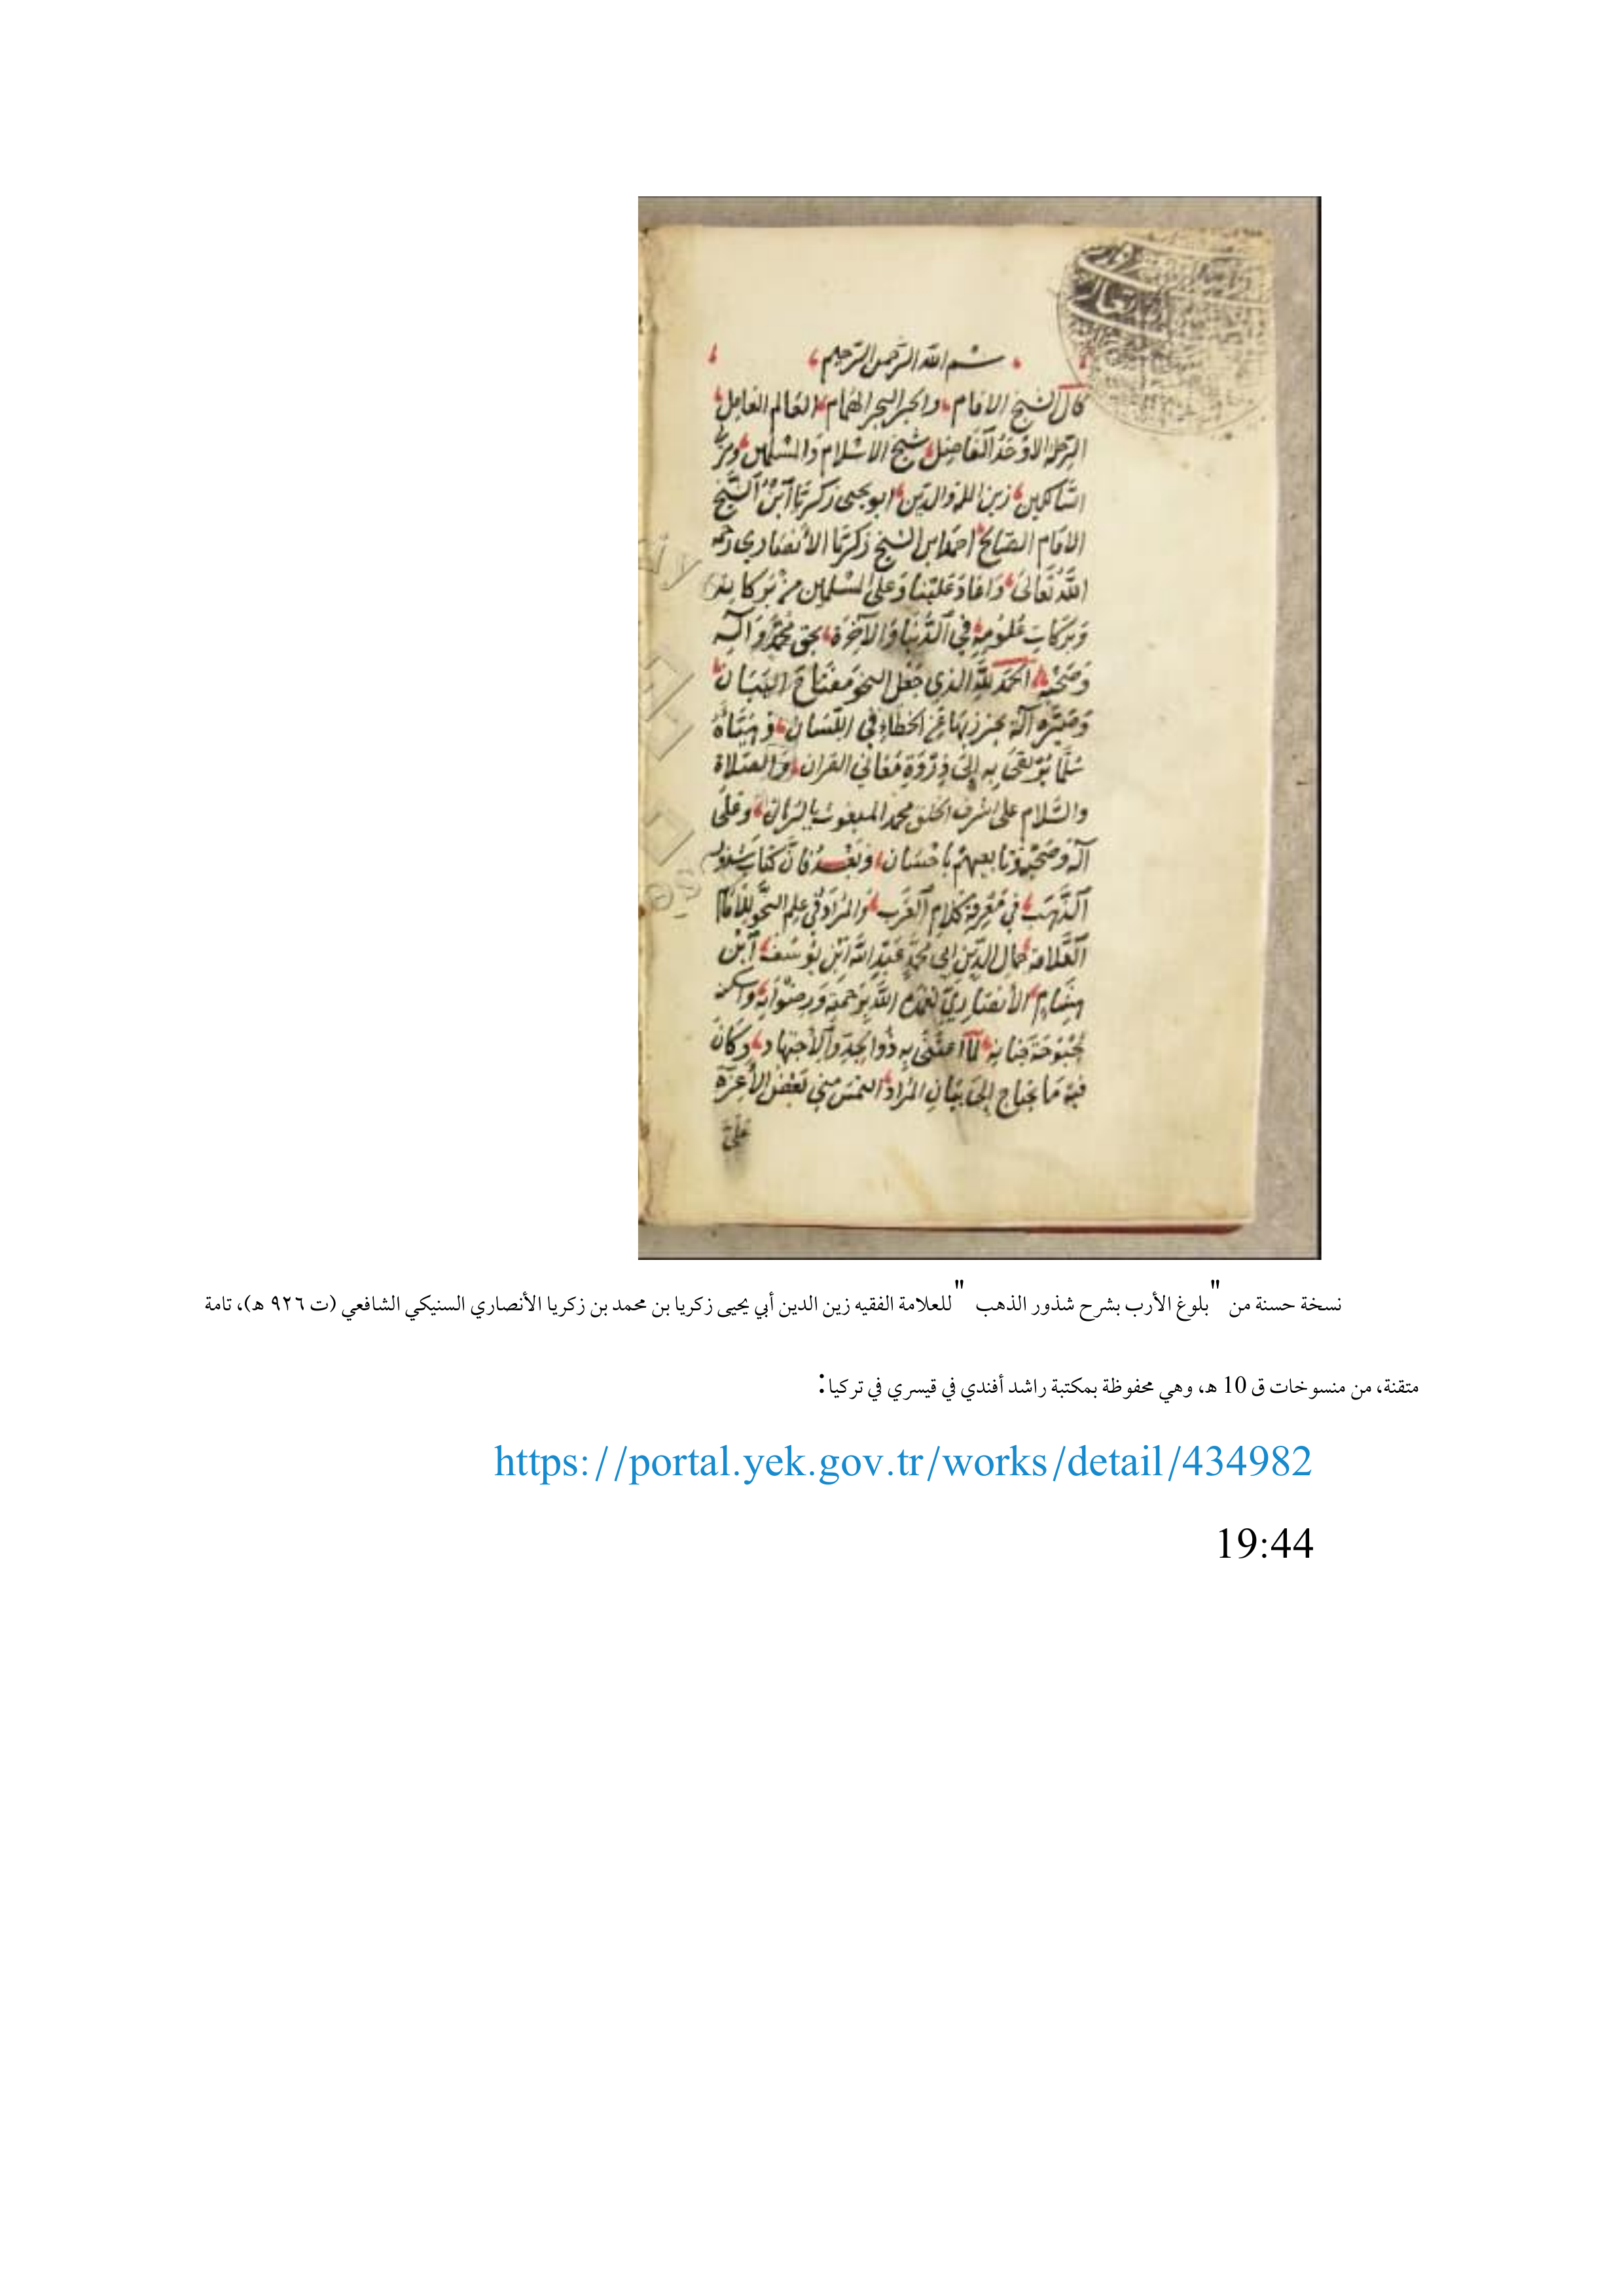 بسم الله الرحمن الرحيم
قال الشيخ الامام والحبر البحر الهمام العالم العامل
الرحلة الاوحد الفاضل شيخ الاسلام والمسلمين ومربي
السالكين زين الملة والدين ابو يحيى زكريا ابن الشيخ
الامام الصالح احمد ابن الشيخ زكريا الأنصاري رحمه
الله تعالى واعاد علينا وعلى المسلمين من بركاته
وبركات علومه في الدنيا والآخرة بحق محمد وآله
وصحبه الحمد لله الذي جعل النحو مفتاح البيان
وصيره آلة يحترز بها عن الخطاء في اللسان وهيأه
سلما يرتقى به إلى ذروة معاني القران والصلاة
والسلام على اشرف الخلق محمد المبعوث وعلى
آله وصحبه وتابعيهم باحسان وبعد فان كتاب شذور
الذهب في معرفة كلام العرب والمراد في علم النحو للامام
العلامة جمال الدين ابي محمد عبد الله ابن يوسف ابن
هشام الأنصاري تغمده الله برحمته ورضوانه واسكنه
بحبوحة جنانه لما اعتنى به ذوا الجد والاجتهاد وكان
فيه ما يحتاج إلى بيان المراد التمس مني بعض الأعزة
علي
نسخة حسنة من "بلوغ الأرب بشرح شذور الذهب" للعلامة الفقيه زين الدين أبي يحيى زكريا بن محمد بن زكريا الأنصاري السنيكي الشافعي (ت ٩٢٦ هـ)، تامة
متقنة، من منسوخات ق 10 هـ، وهي محفوظة بمكتبة راشد أفندي في قيسري في تركيا:
https://portal.yek.gov.tr/works/detail/434982
19:44